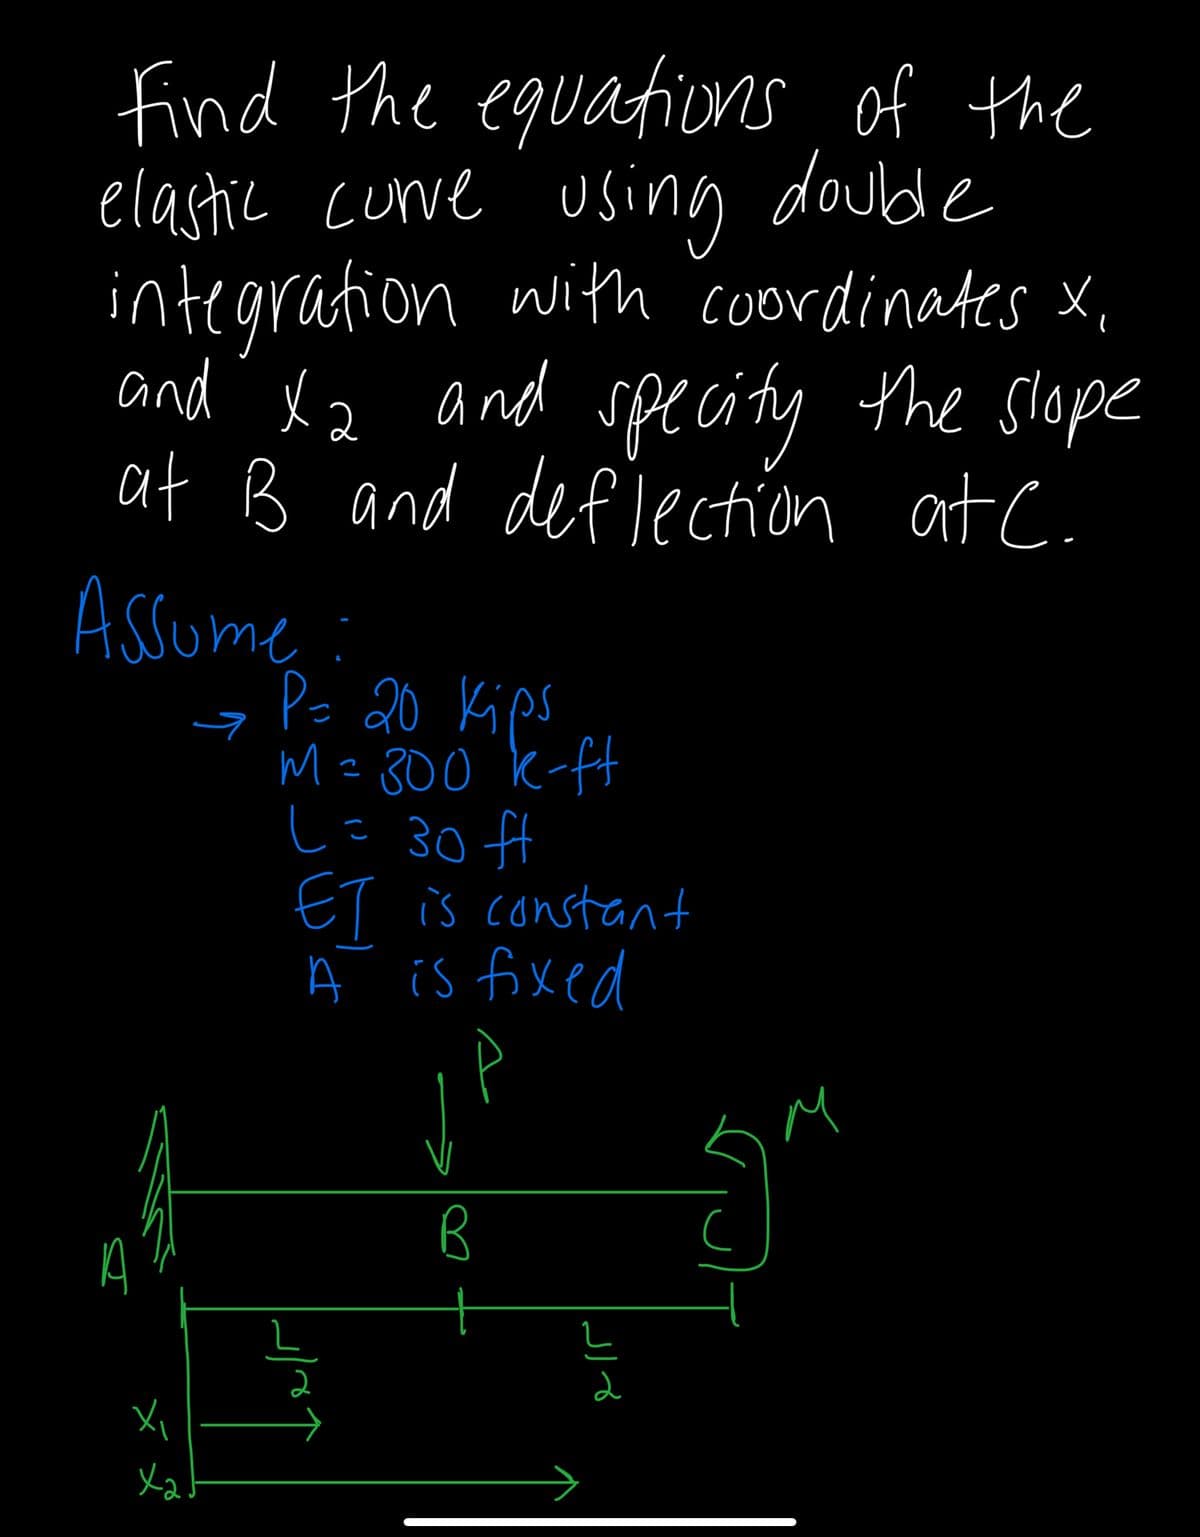 Find the equations of the
elastic curve using double
integration with coordinates x₁
and x₂ and specify the slope
at B and deflection at C.
Assume:
→ P= 20 kips
M = 300 k-ft
L = 30 ft
EI is constant
A is fixed
P
M
B
C
A
L/2
L/2
x₁
x₂